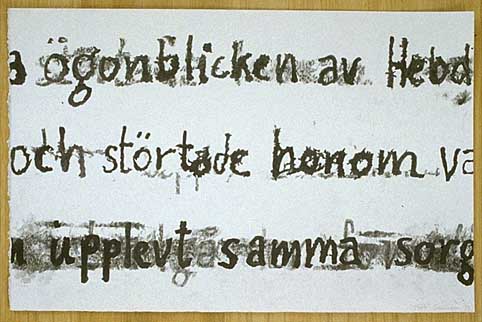 a ögonblicken av Hebd
och störtade honom va
n upplevt samma sorg